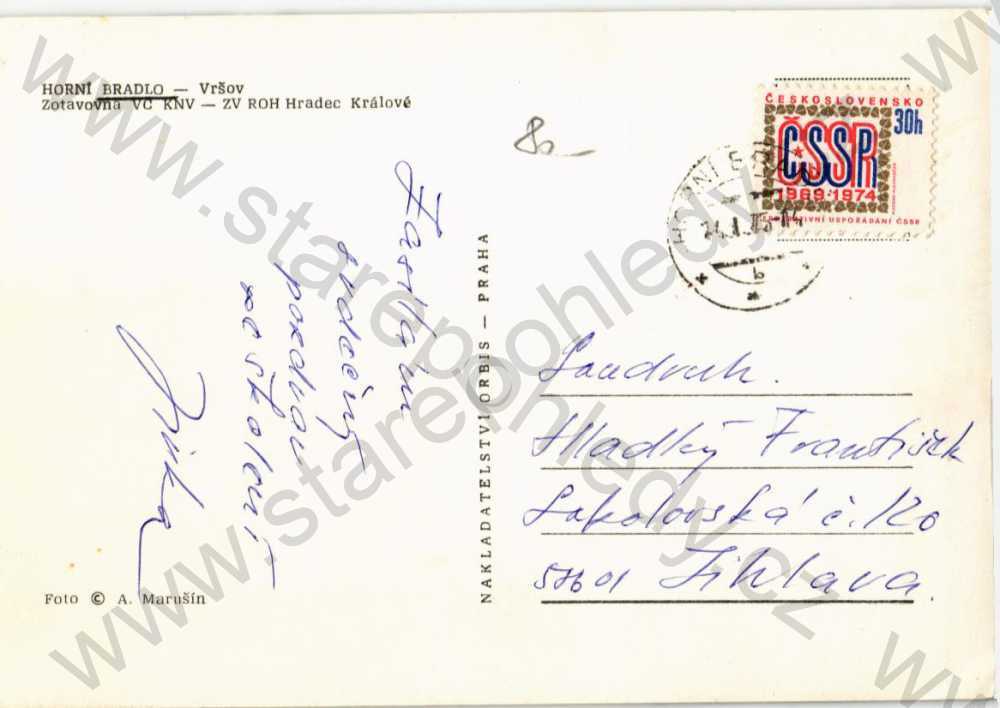 HORNÍ BRADLO — Vršov
Zotavovna VČ KNV — ZV ROH Hradec Králové
80
ČESKOSLOVENSKO
30h
ČSSR
1969-1974
USPOŘÁDÁNÍ ČSSR
HORNÍ
b
Zasílám
srdečný
pozdrav
ze školení
Jirka
NAKLADATELSTVÍ ORBIS — PRAHA
Soudruh.
Hladký František
Sokolovská č. 120
586 01 Jihlava.
Foto © A. Marušín
www.starepohledy.cz
www.starepohledy.cz